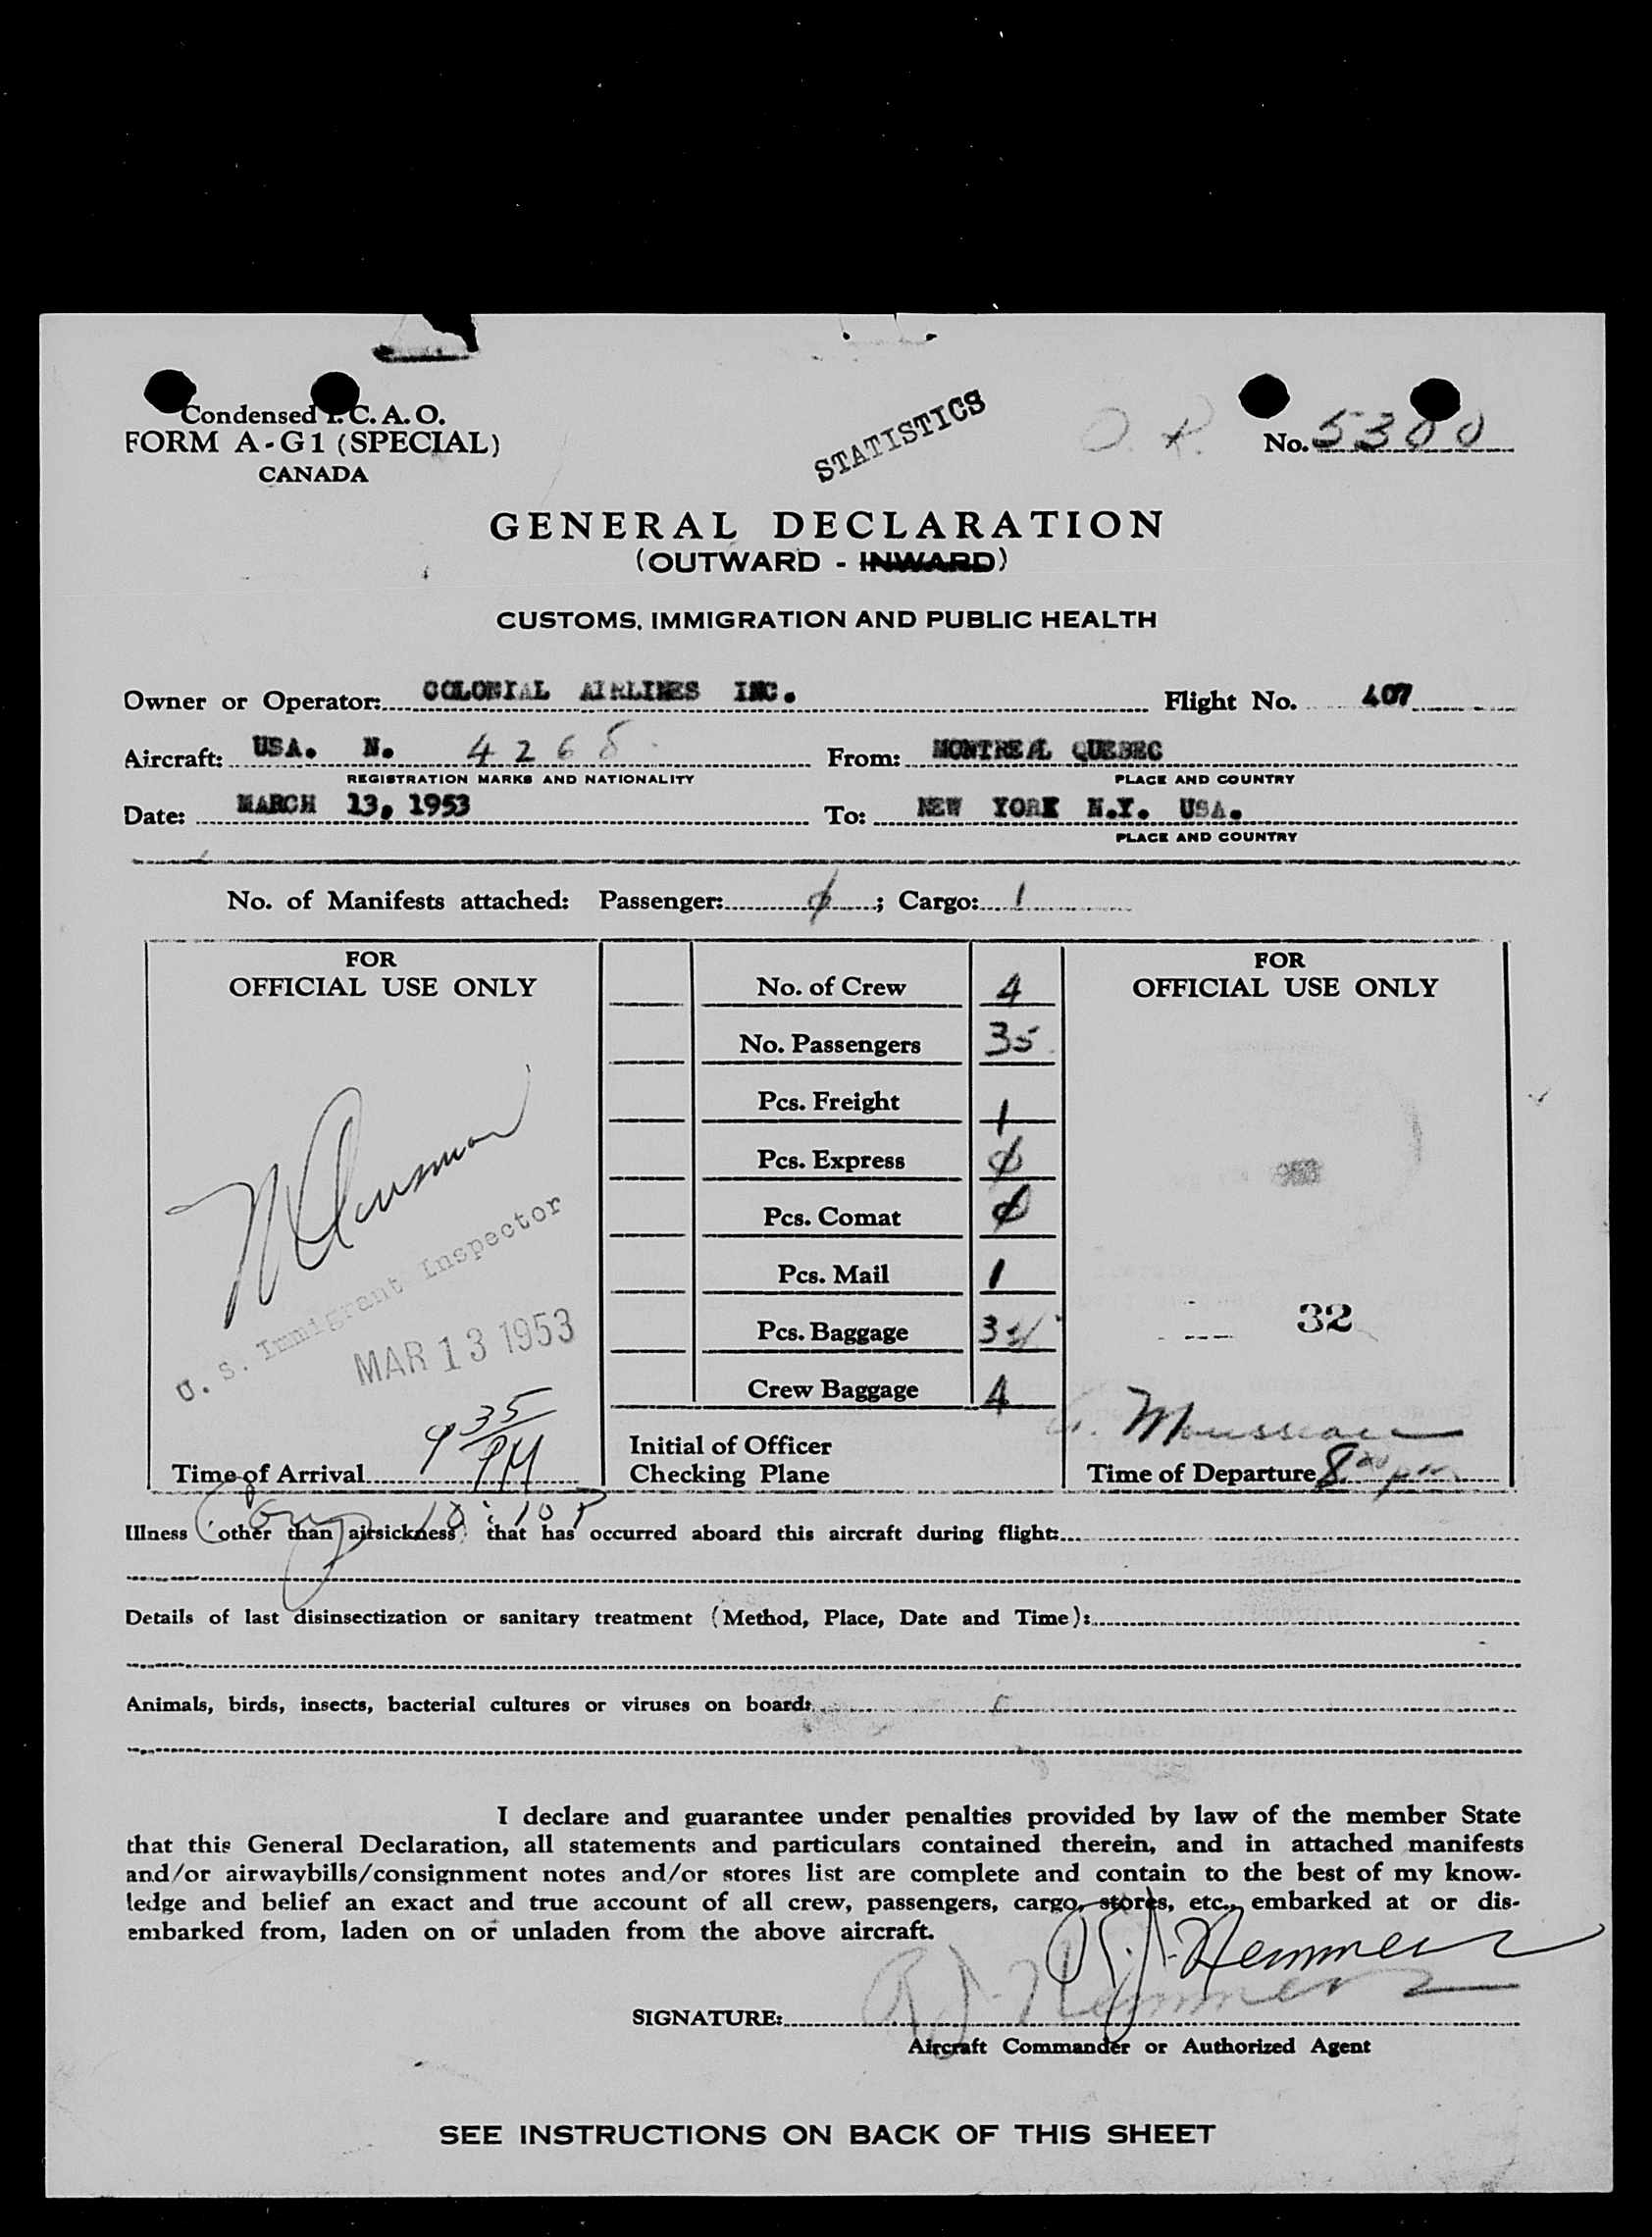 Condensed I.C.A.O.
FORM A-G1 (SPECIAL)
CANADA
STATISTICS
No. 5300
GENERAL DECLARATION
(OUTWARD - INWARD)
CUSTOMS, IMMIGRATION AND PUBLIC HEALTH
Owner or Operator: COLONIAL AIRLINES INC. Flight No. 407
Aircraft: USA. N. 4268 From: MONTREAL QUEBEC
REGISTRATION MARKS AND NATIONALITY PLACE AND COUNTRY
Date: MARCH 13, 1953 To: NEW YORK N.Y. USA.
PLACE AND COUNTRY
No. of Manifests attached: Passenger: ϕ; Cargo: 1
FOR
OFFICIAL USE ONLY
U. S. Immigrant Inspector
MAR 13 1953
9 35
PM
Time of Arrival
No. of Crew 4
No. Passengers 35
Pcs. Freight 1
Pcs. Express ϕ
Pcs. Comat ϕ
Pcs. Mail 1
Pcs. Baggage
Crew Baggage 4
Initial of Officer
Checking Plane
FOR
OFFICIAL USE ONLY
32
Mousseau
Time of Departure 8 00 pm
10:10 P
Illness (other than airsickness) that has occurred aboard this aircraft during flight:
Details of last disinsectization or sanitary treatment (Method, Place, Date and Time):
Animals, birds, insects, bacterial cultures or viruses on board:
I declare and guarantee under penalties provided by law of the member State
that this General Declaration, all statements and particulars contained therein, and in attached manifests
and/or airwaybills/consignment notes and/or stores list are complete and contain to the best of my know-
ledge and belief an exact and true account of all crew, passengers, cargo, stores, etc., embarked at or dis-
embarked from, laden on or unladen from the above aircraft.
R J. Hemmerz
R J. Hemmerz
SIGNATURE:
Aircraft Commander or Authorized Agent
SEE INSTRUCTIONS ON BACK OF THIS SHEET